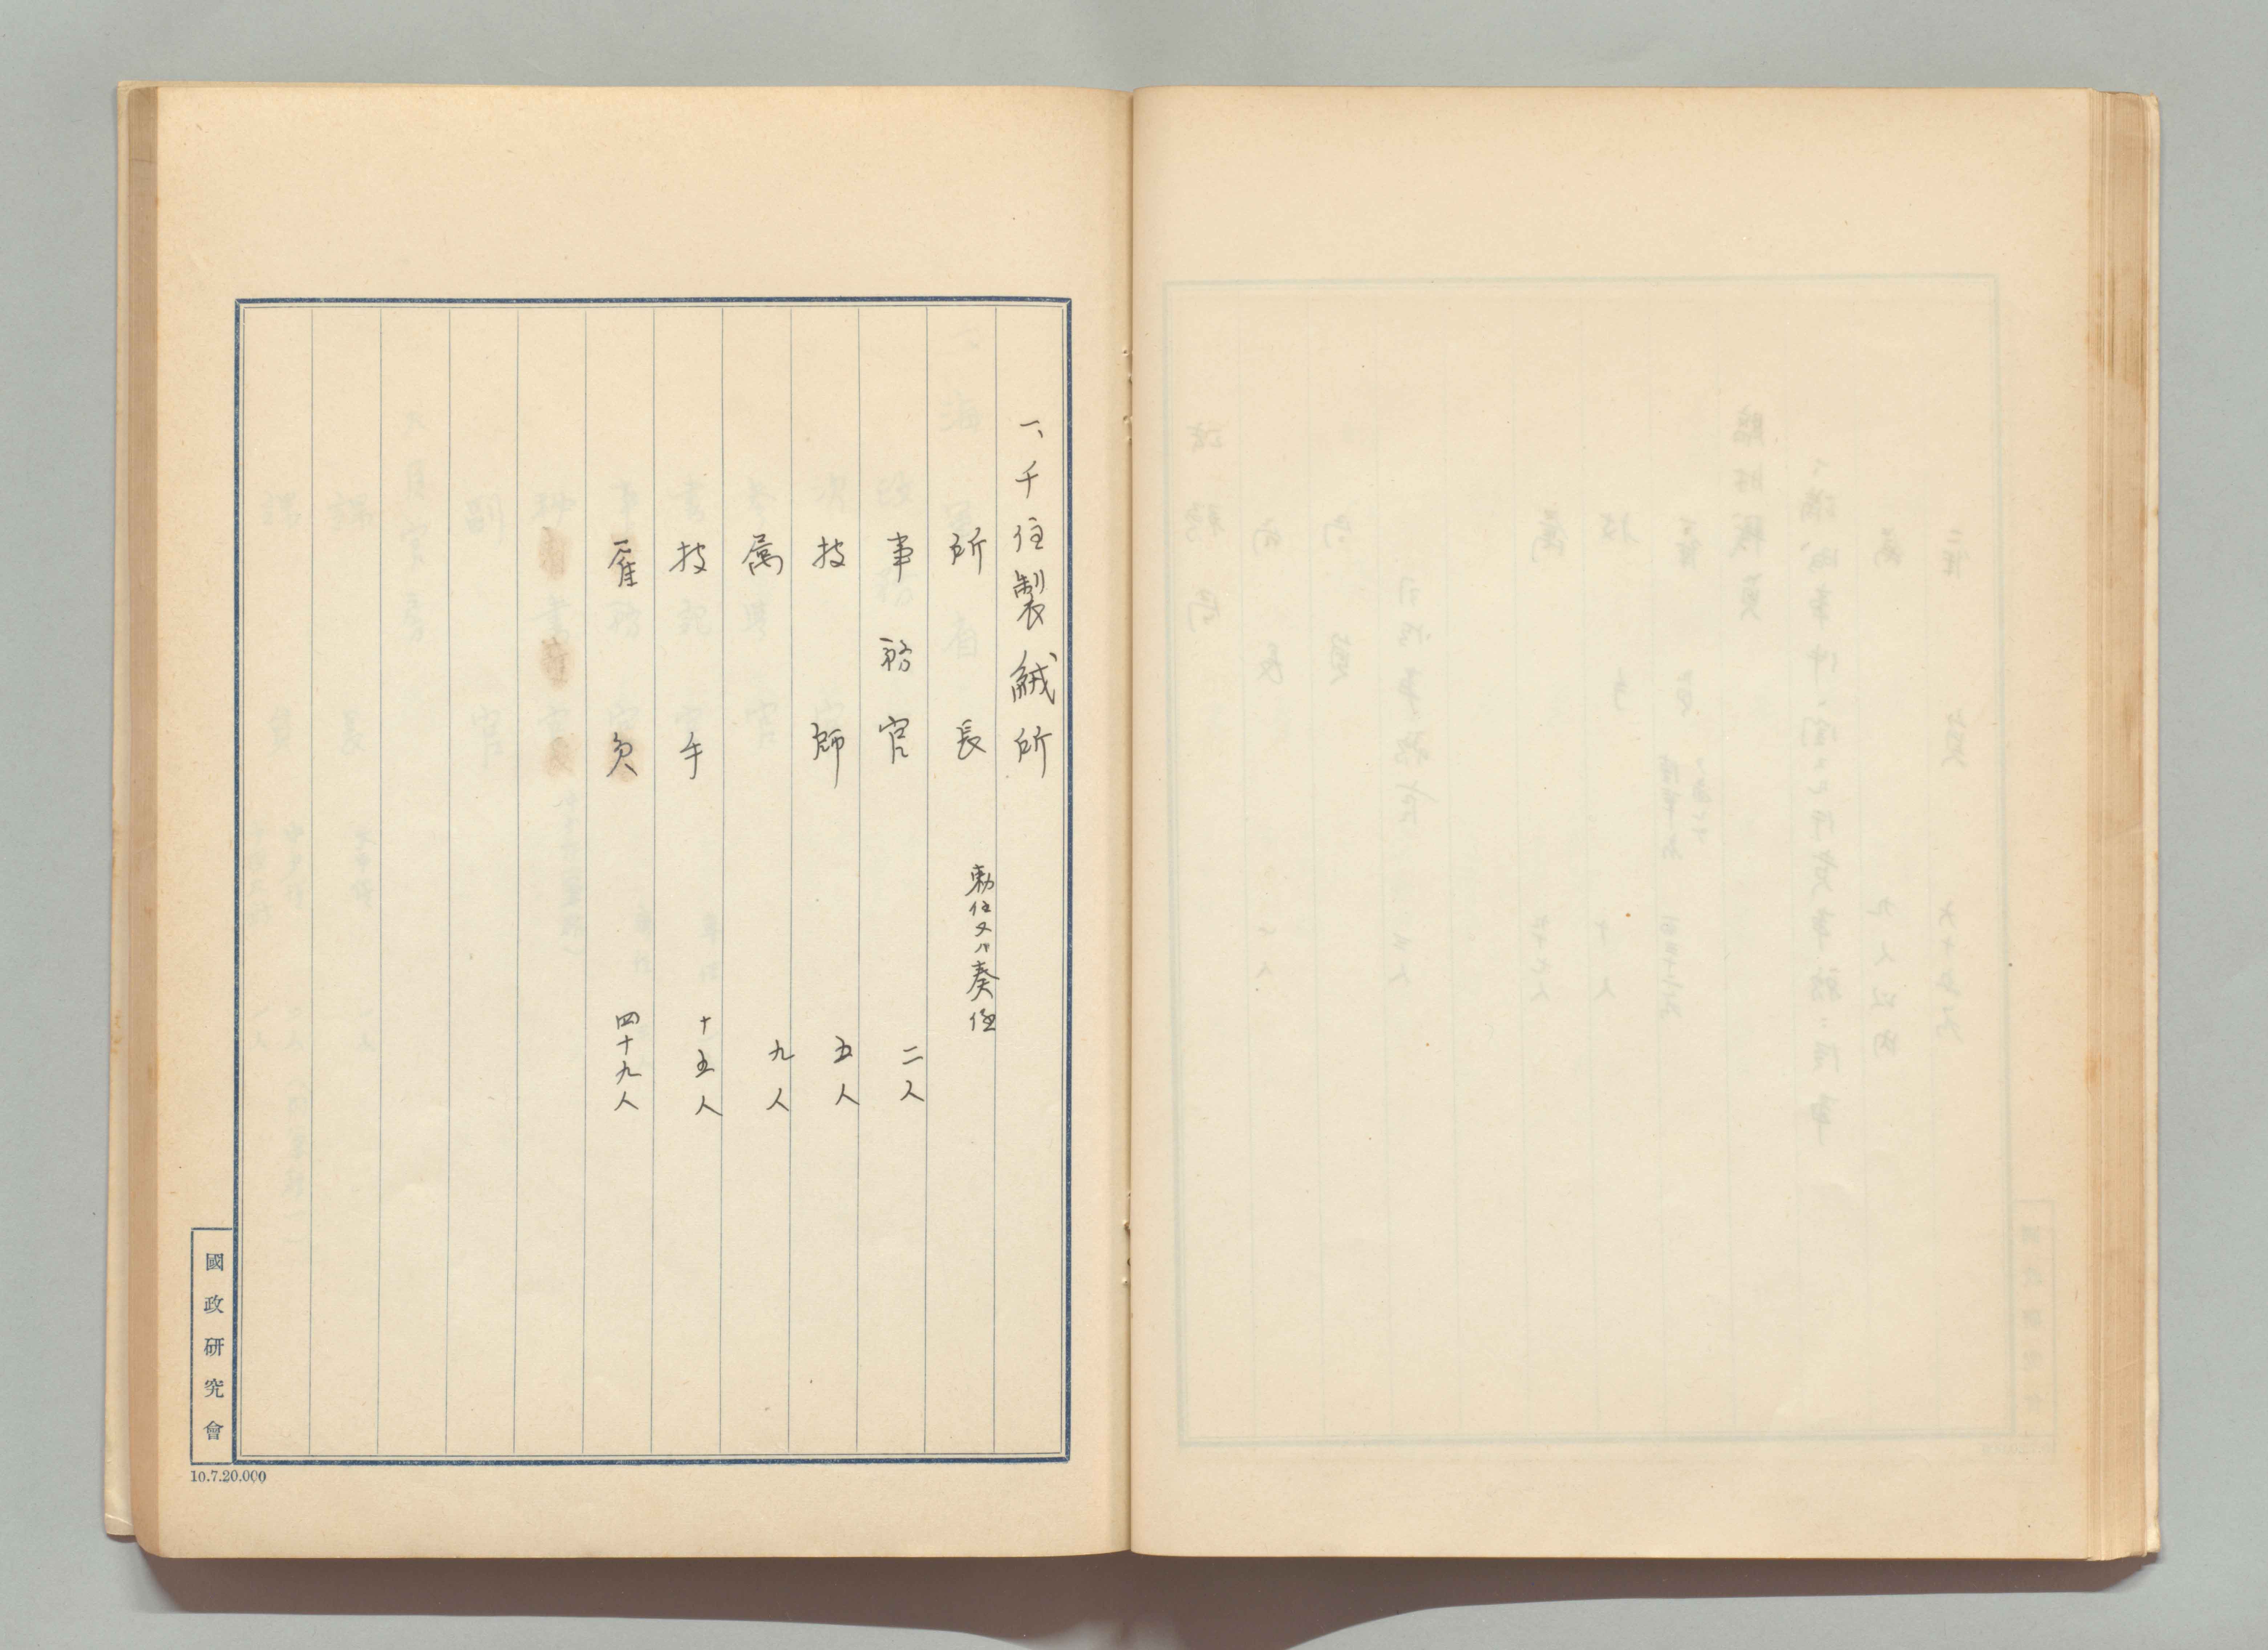 一、千住製絨所
所長 勅任又ハ奏任
事務官 二人
技師 五人
属 九人
技手 十五人
雇員 四十九人
國政研究會
10.7.20.000